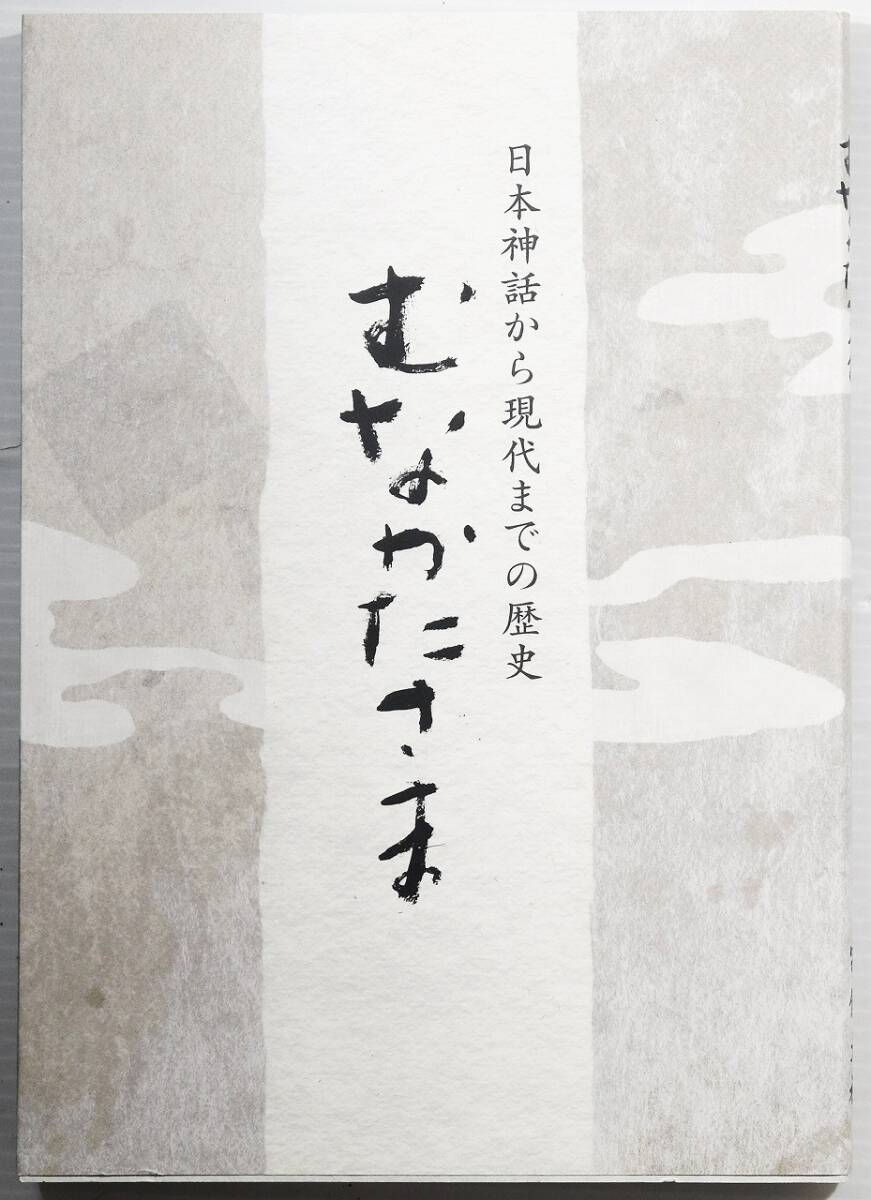 日本神話から現代までの歴史
むなかたさま